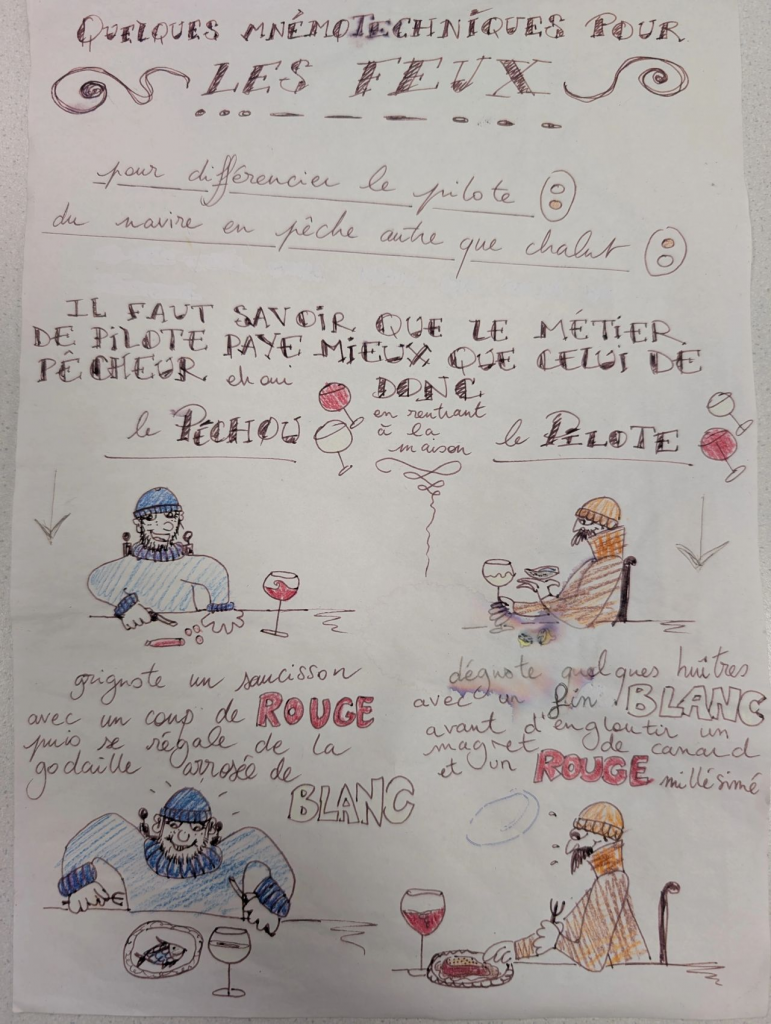 QUELQUES MNÉMOTECHNIQUES POUR
LES FEUX
pour différencier le pilote
du navire en pêche autre que chalut
IL FAUT SAVOIR QUE LE MÉTIER
DE PILOTE PAYE MIEUX QUE CELUI DE
PÊCHEUR eh oui DONC
en rentrant
à la
maison
le PÉCHOU
le PILOTE
grignote un saucisson
avec un coup de ROUGE
puis se régale de la
godaille arrosée de
BLANC
déguste quelques huîtres
avec un fin BLANC
avant d'engloutir un
magret de canard
et un ROUGE millésimé